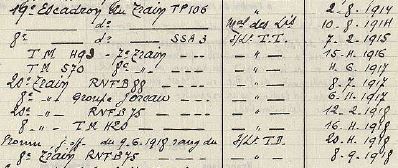 19e Escadron du Train TP106 " 2-8-1914
d° Mal des Lis 10-8-1914
8e d° SSA3 S/Lt T.T. 7-2-1915
TM H93 - 7e Train - " - 15-11-1916
TM 570 8e " - " - H-6-1917
20e Train RNFB88 - " - 8-7-1917
8e - " - Groupe - " - 6-11-1917
20e - " - RNFB75 - " - 12-2-1918
8 - " - TM H20 - " - 16-H-1918
Promu off. du 9.6.1918 rang du S/Lt T.D. 20-H-1918
8e Train RNFB75 - " - 8-9-1918